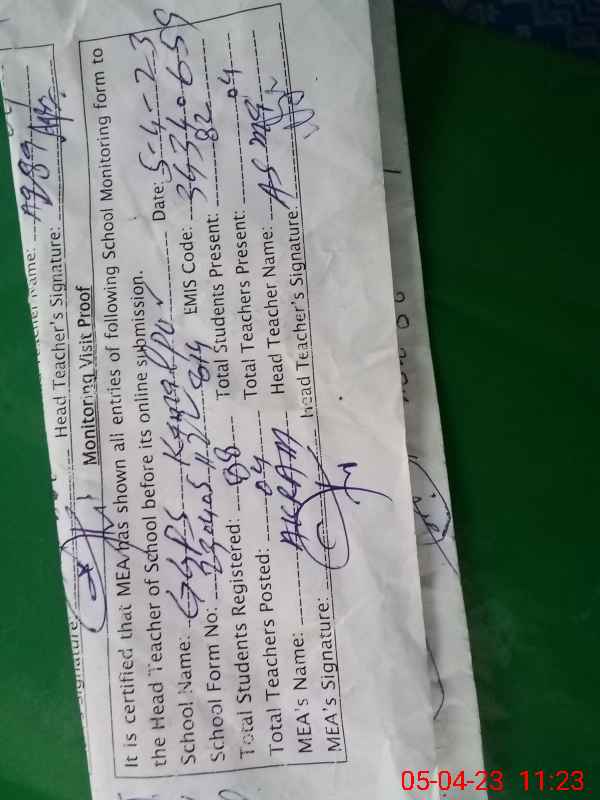 Head Teacher's Signature:
Monitoring Visit Proof
It is certified that MEA has shown all entries of following School Monitoring form to
the Head Teacher of School before its online submission. Date: 5-4-23
School Name: GGPS EMIS Code:
School Form No: Total Students Present: 82
Total Students Registered: 88 Total Teachers Present: 04
Total Teachers Posted: 04 Head Teacher Name:
MEA's Name: AKRAM Head Teacher's Signature:
MEA's Signature:
05-04-23 11:23